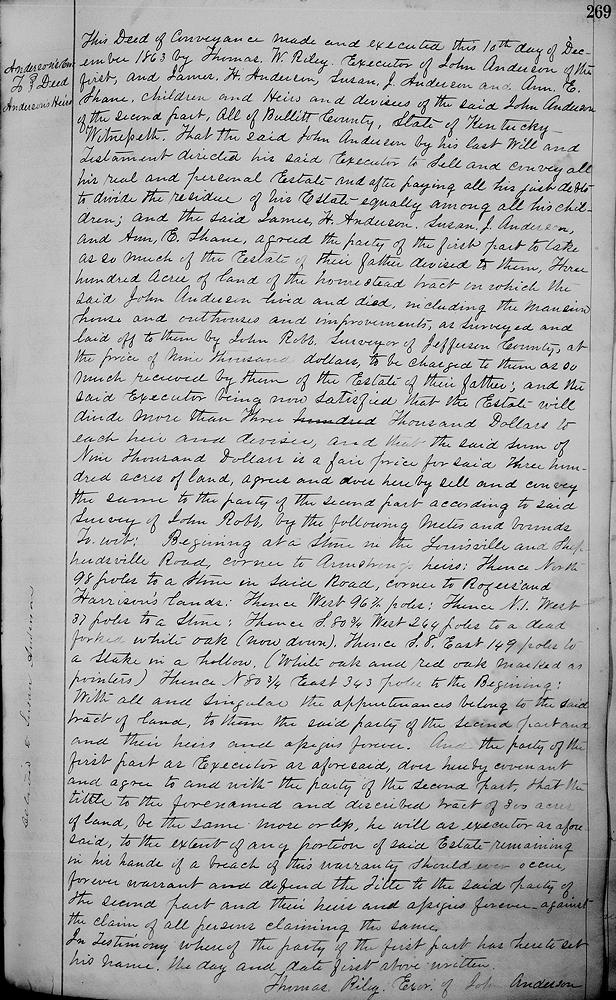 269
Anderson's Exr
To } Deed
Anderson's Heirs
This Deed of Conveyance made and executed this 10th day of Dec-
ember 1863 by Thomas. W. Riley. Executor of John Anderson of the
first, and James. H. Anderson, Susan, J. Anderson and Ann. E.
Shane, Children and Heirs and devisees of the said John Anderson
of the second part, all of Bullitt County, State of Kentucky-
Witnesseth. That the said John Anderson by his last Will and
Testament directed his said Executor to Sell and convey all
his real and personal Estate and after paying all his just debts
to divide the residue of his Estate equally among all his chil-
dren; and the said James, H. Anderson. Susan, J. Anderson,
and Ann, E. Shane, agreed the party of the first part to take
as so much of the Estate of their father devised to them, Three
hundred Acres of land of the homestead tract on which the
said John Anderson lived and died, including the mansion
house and outhouses and improvements, as surveyed and
laid off to them by John Robb. Surveyor of Jefferson County, at
the price of Nine Thousand dollars, to be charged to them as so
much recieved by them of the Estate of their father; and the
said Executor being now satisfied that the Estate will
divide more than Three hundred Thousand Dollars to
each heir and devisee, and that the said sum of
Nine Thousand Dollars is a fair price for said Three hun-
dred acres of land, agrees and does hereby sell and convey
the same to the party of the second part according to said
Survey of John Robb, by the following metes and bounds
To. wit: Begining at a Stone in the Louisville and Shep-
herdsville Road, corner to Armstrong heirs: Thence North
98 poles to a Stone in said Road, corner to Rogers and
Harrison's lands: Thence West 96 1/2 poles: Thence N.1. West
37 poles to a Stone: Thence S. 80 3/4 West 264 poles to a dead
forked white oak (now down). Thence S. 8. East 149 poles to
a Stake in a hollow, (White oak and red oak marked as
pointers) Thence N 80 3/4 East 343 poles to the Begining:
With all and singular the appurtenances belong to the said
tract of land, to them the said party of the second part and
and their heirs and assigns forever. And the party of the
first part as Executor as aforesaid, does hereby covenant
and agree to and with the party of the second part, that the
tittle to the forenamed and discribed tract of 300 acres
of land, be the same more or less, he will as executor as afore-
said, to the extent of any portion of said Estate remaining
in his hands of a breach of this warranty should ever occur,
forever warrant and defend the Title to the said party of
the second part and their heirs and assigns forever against
the claim of all persons claiming the same,
In Testimony whereof the party of the first part has hereto set
his name, the day and date first above written.
Thomas. Riley. Exor. of John Anderson